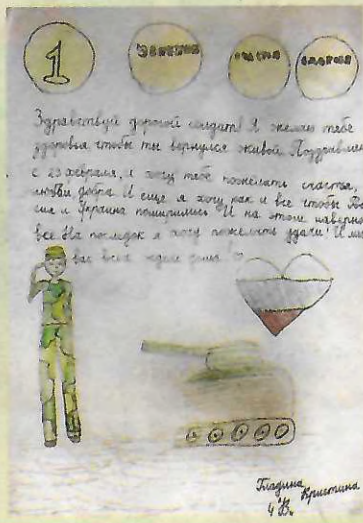 1
счастья здоровья
Здравствуй дорогой солдат! Я желаю тебе
здоровья чтобы ты вернулся живой. Поздравляю
с 23 февраля, я хочу тебе пожелать счастья,
любви добра. И еще я хочу как и все чтобы Рос
сия и Украина помирились. И на этом наверно
все. На последок я хочу пожелать удачи! И мы
вас всех ждем дома!
Кристина
4 "В"